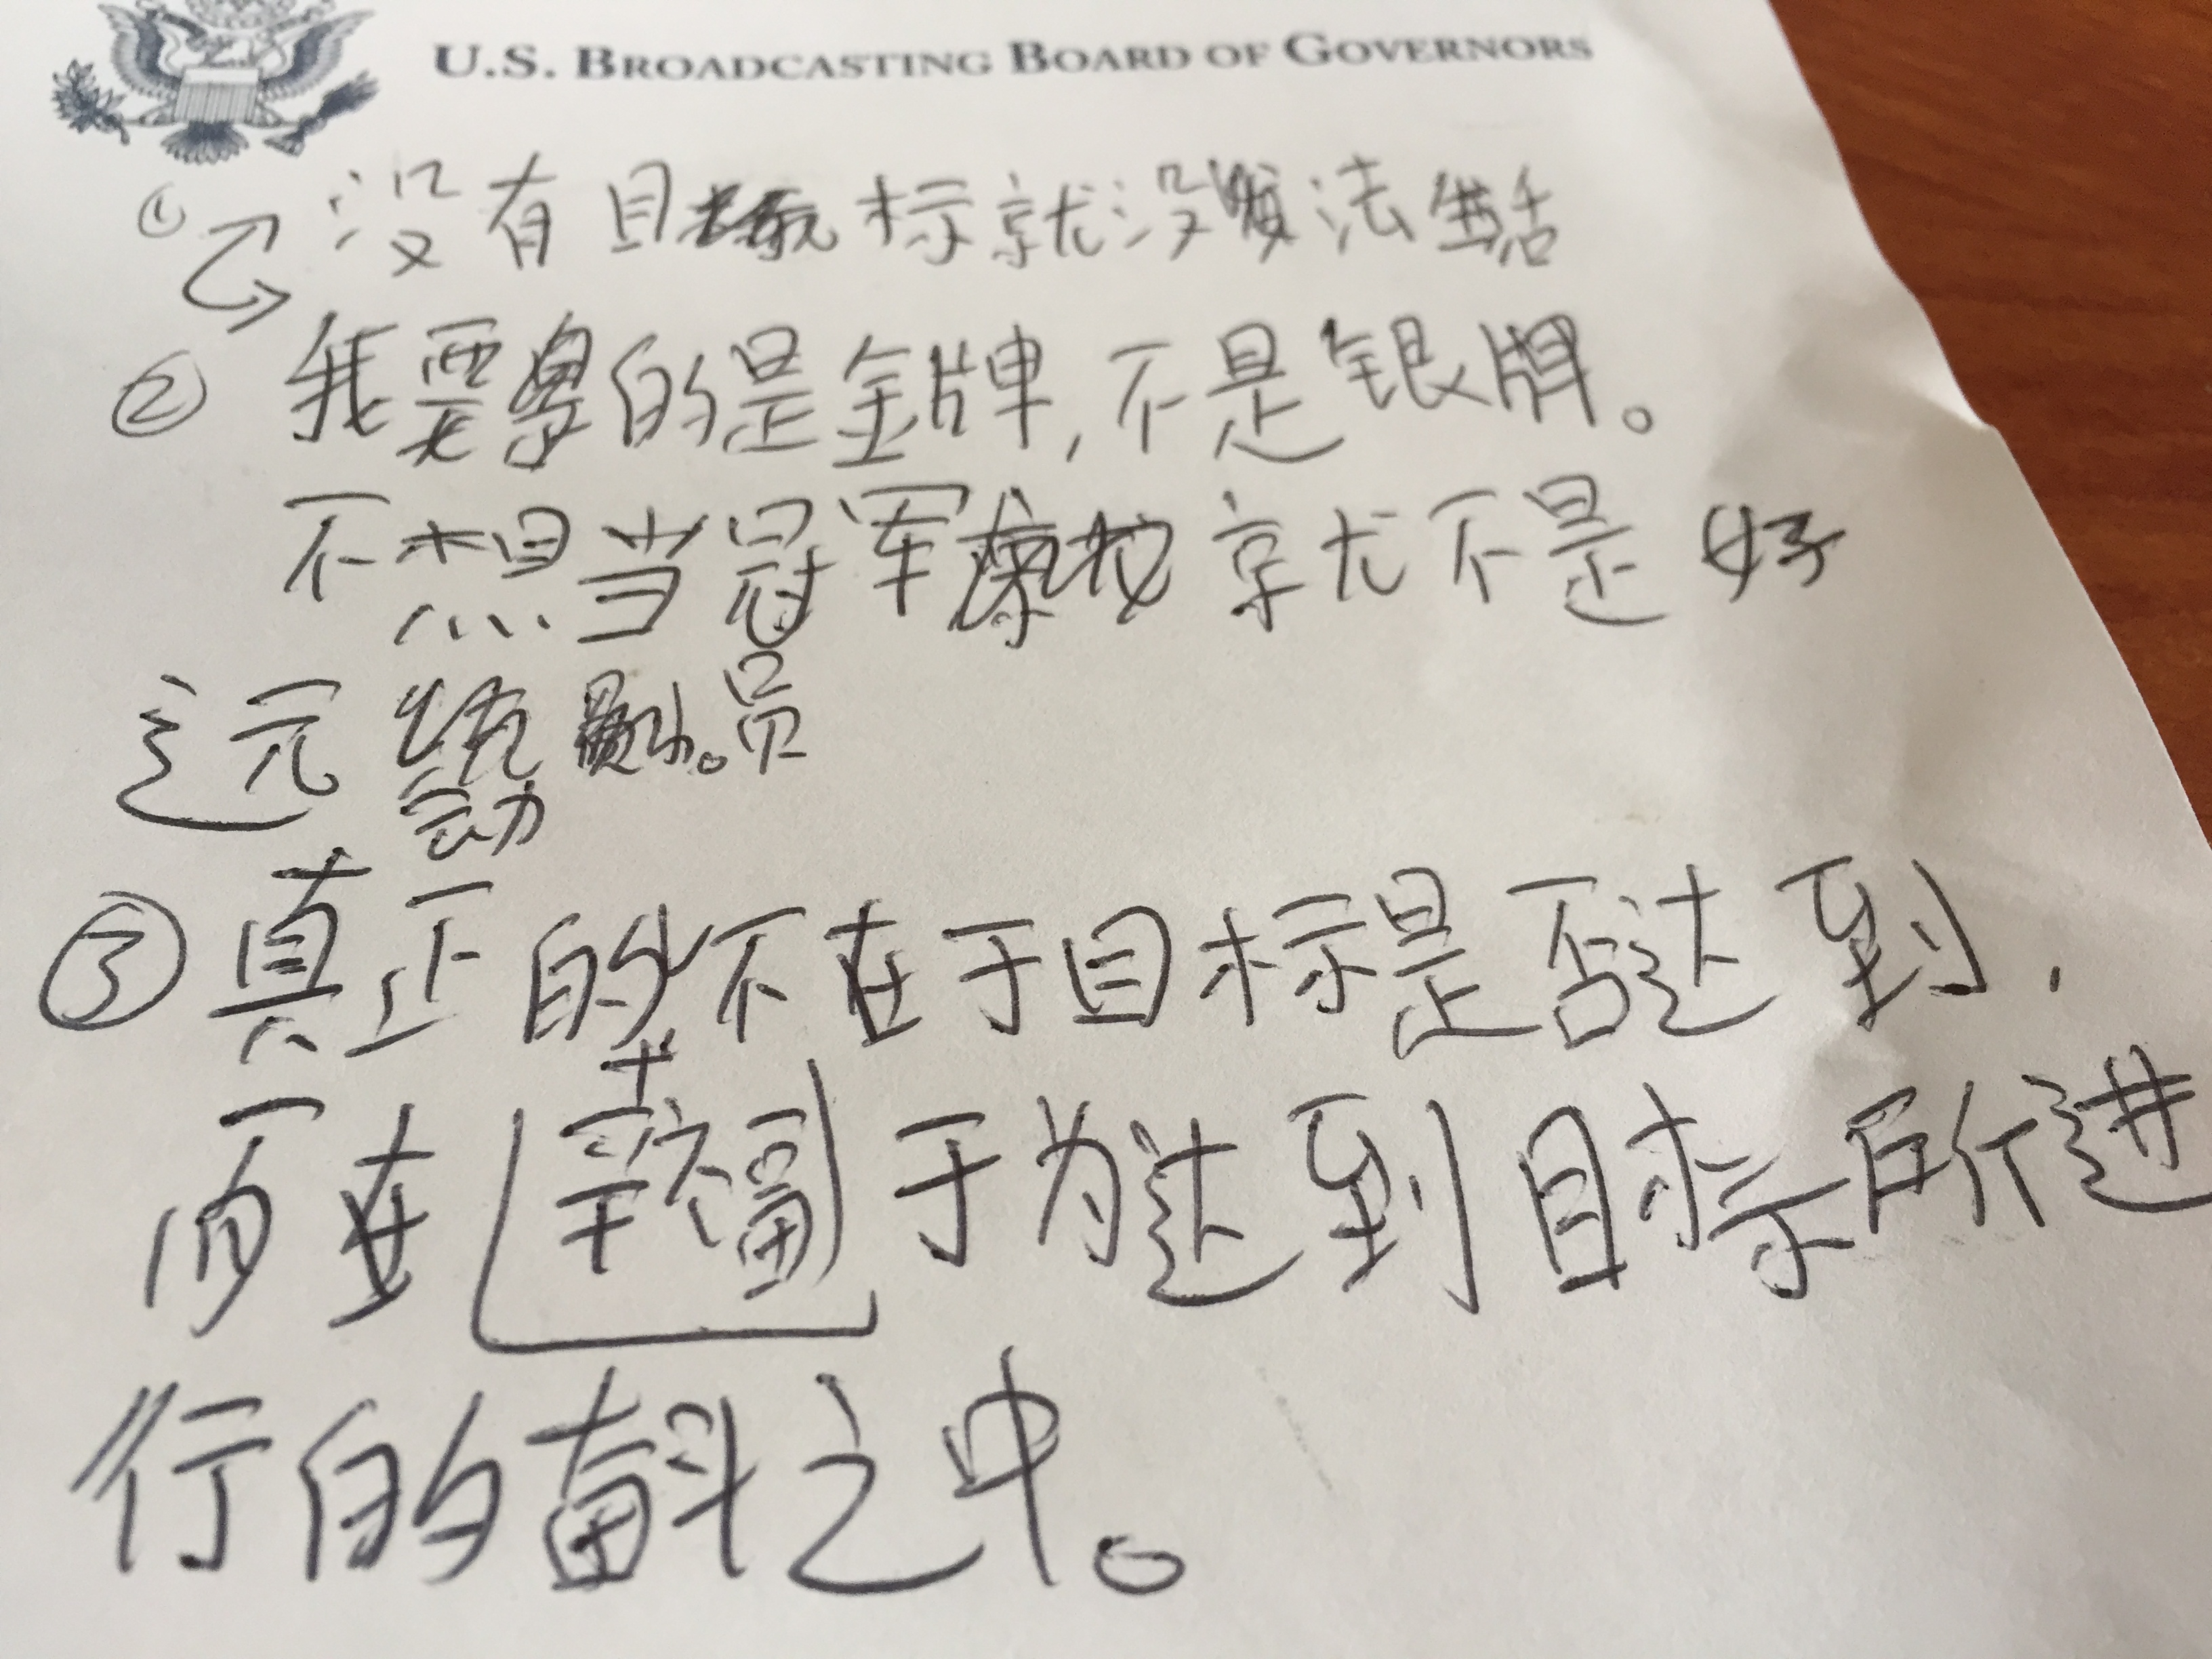 U.S. BROADCASTING BOARD OF GOVERNORS
① 没有目标就没法生活
② 我要的是金牌,不是银牌。
不想当冠军就不是好
运动员
③ 真正的不在于目标是否达到,
而在幸福于为达到目标所进
行的奋斗之中。